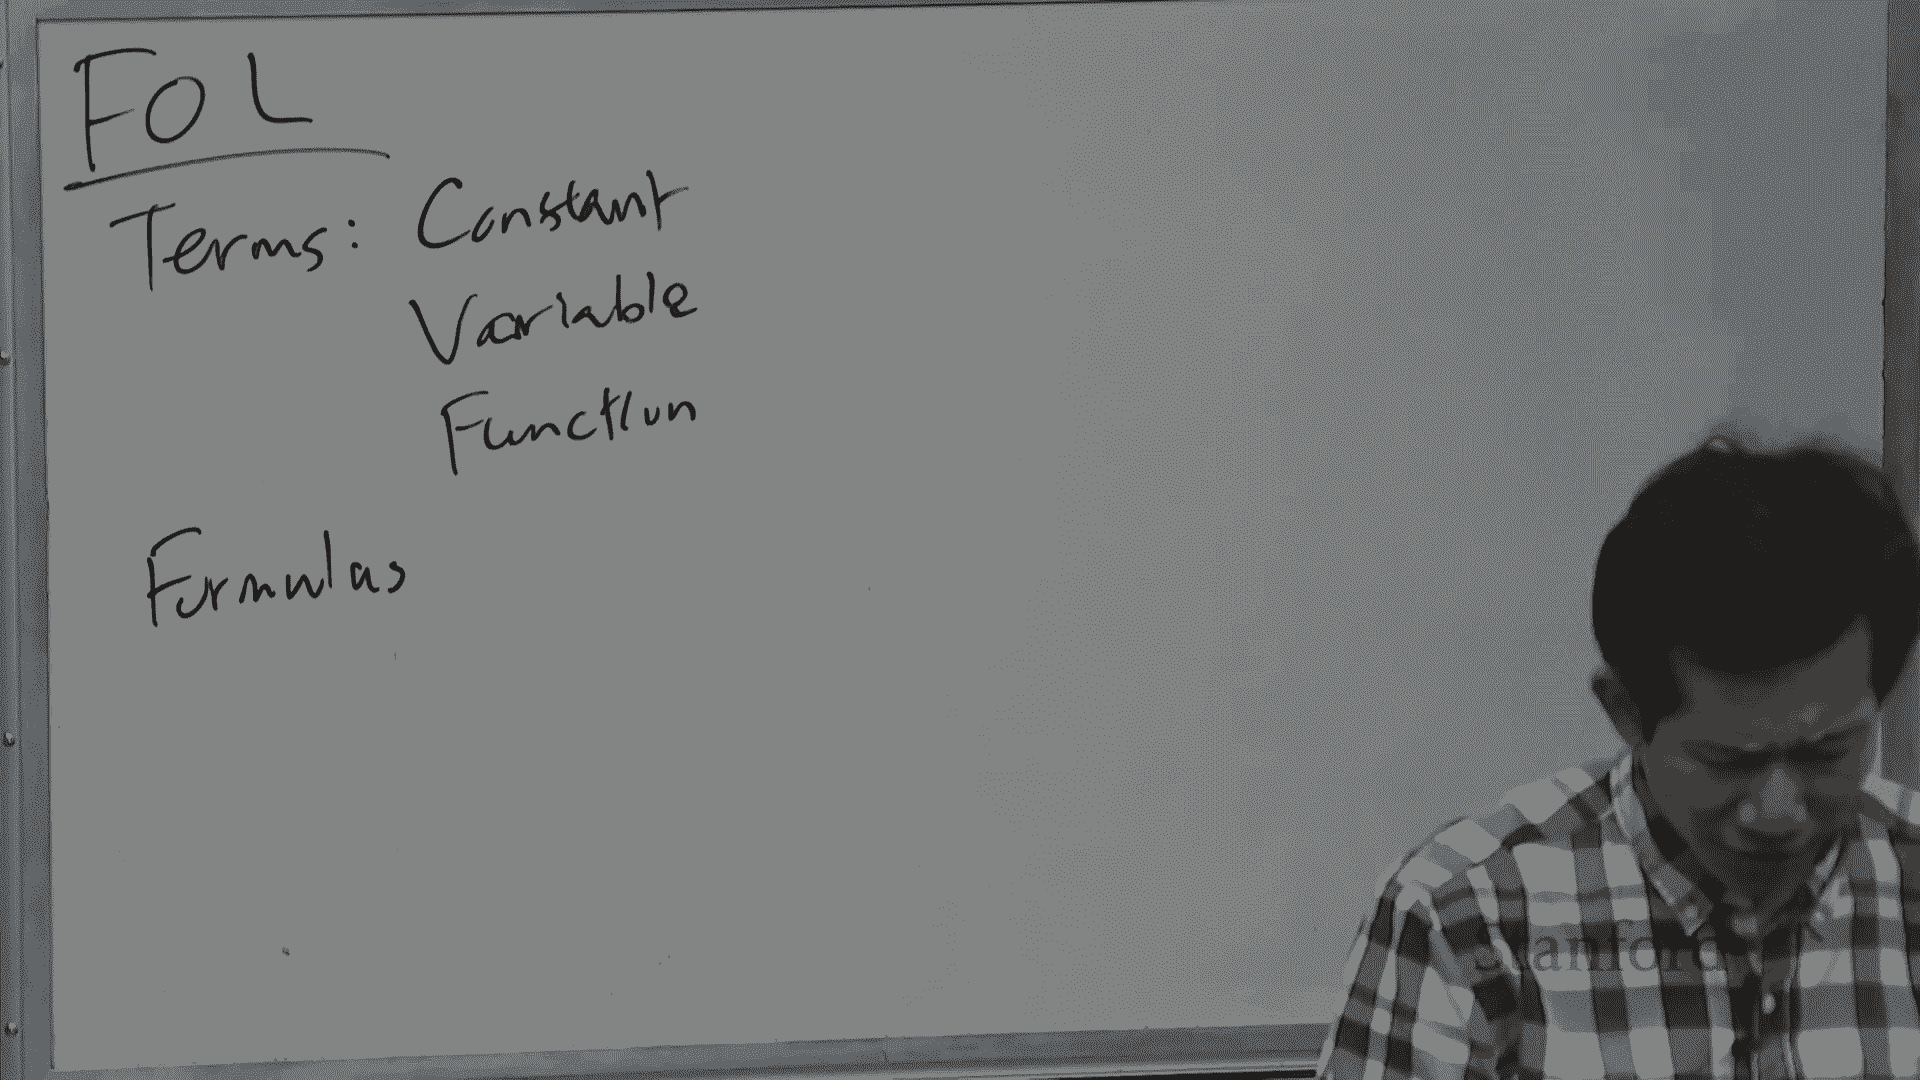 FOL
Terms: Constant
Variable
Function
Formulas
Stanford